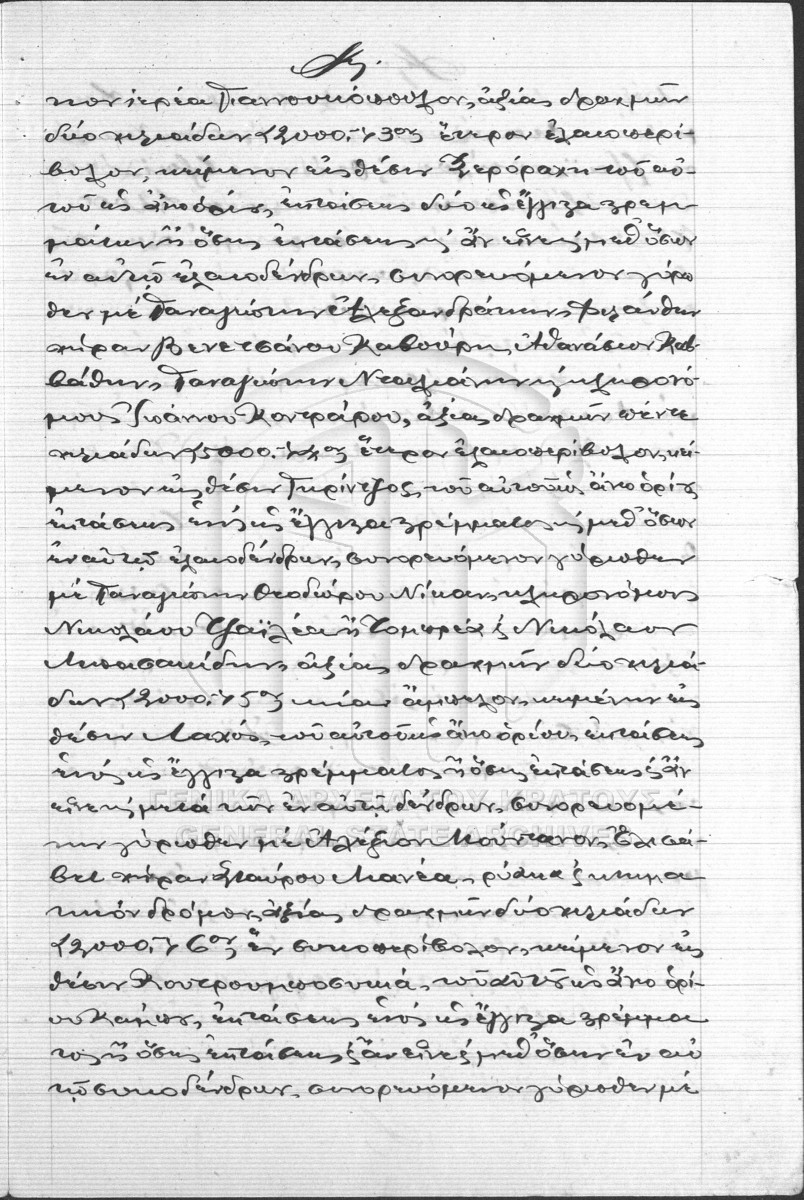 τον ιερέα Γιαννουκόπουλον, αξίας δραχμών
δύο χιλιάδων (2000.-) 3ον έτερον ελαιοπερί-
βολον, κείμενον εις θέσιν Ξερόραχη του αυ-
του ως άνω ορίου, εκτάσεως δύο ως έγγιζα στρεμ-
μάτων ή όσης εκτάσεως κι αν είνε μεθ' όσων
εν αυτώ ελαιοδένδρων, συνορευόμενον γύρω-
θεν με Παναγιώτην Αλεξανδράκην,
χήραν Βενετσάνου Καβούρη, Αθανάσιον Καβ-
βάθην, Παναγιώτην και κληρονό-
μους Ιωάννου αξίας δραχμών πέντε
χιλιάδων (5000.-) 4ον έτερον ελαιοπερίβολον, κεί-
μενον εις θέσιν του αυτού ως άνω ορίου
εκτάσεως ενός ως έγγιζα στρέμματος και μεθ' όσων
εν αυτώ ελαιοδένδρων, συνορευόμενον γύρωθεν
με Παναγιώτην Θεοδώρου Νίκαν, κληρονόμους
Νικολάου ή & Νικόλαον
αξίας δραχμών δύο χιλιά-
δων (2000.-) 5ον μίαν άμπελον, κειμένην εις
θέσιν Λαχός, του αυτού ως άνω ορίου, εκτάσεως
ενός ως έγγιζα στρέμματος ή όσης εκτάσεως & αν
είνε και μετά των εν αυτή δένδρων, συνορευομέ-
νην γύρωθεν με Αλέξιον Ελισά-
βετ χήραν Σταύρου Μανέα, ρύακα & κτημα-
τικόν δρόμον, αξίας δραχμών δύο χιλιάδων
(2000.-) 6ον έν συκοπερίβολον, κείμενον εις
θέσιν Κουτρουμποσυκιά, του αυτού ως άνω ορί-
ου Κάμπου, εκτάσεως ενός ως έγγιζα στρέμμα-
τος ή όσης εκτάσεως & αν είνε & μεθ' όσων εν αυ-
τώ συκοδένδρων, συνορευόμενον γύρωθεν με
ΓΕΝΙΚΑ ΑΡΧΕΙΑ ΤΟΥ ΚΡΑΤΟΥΣ
GENERAL STATE ARCHIVES